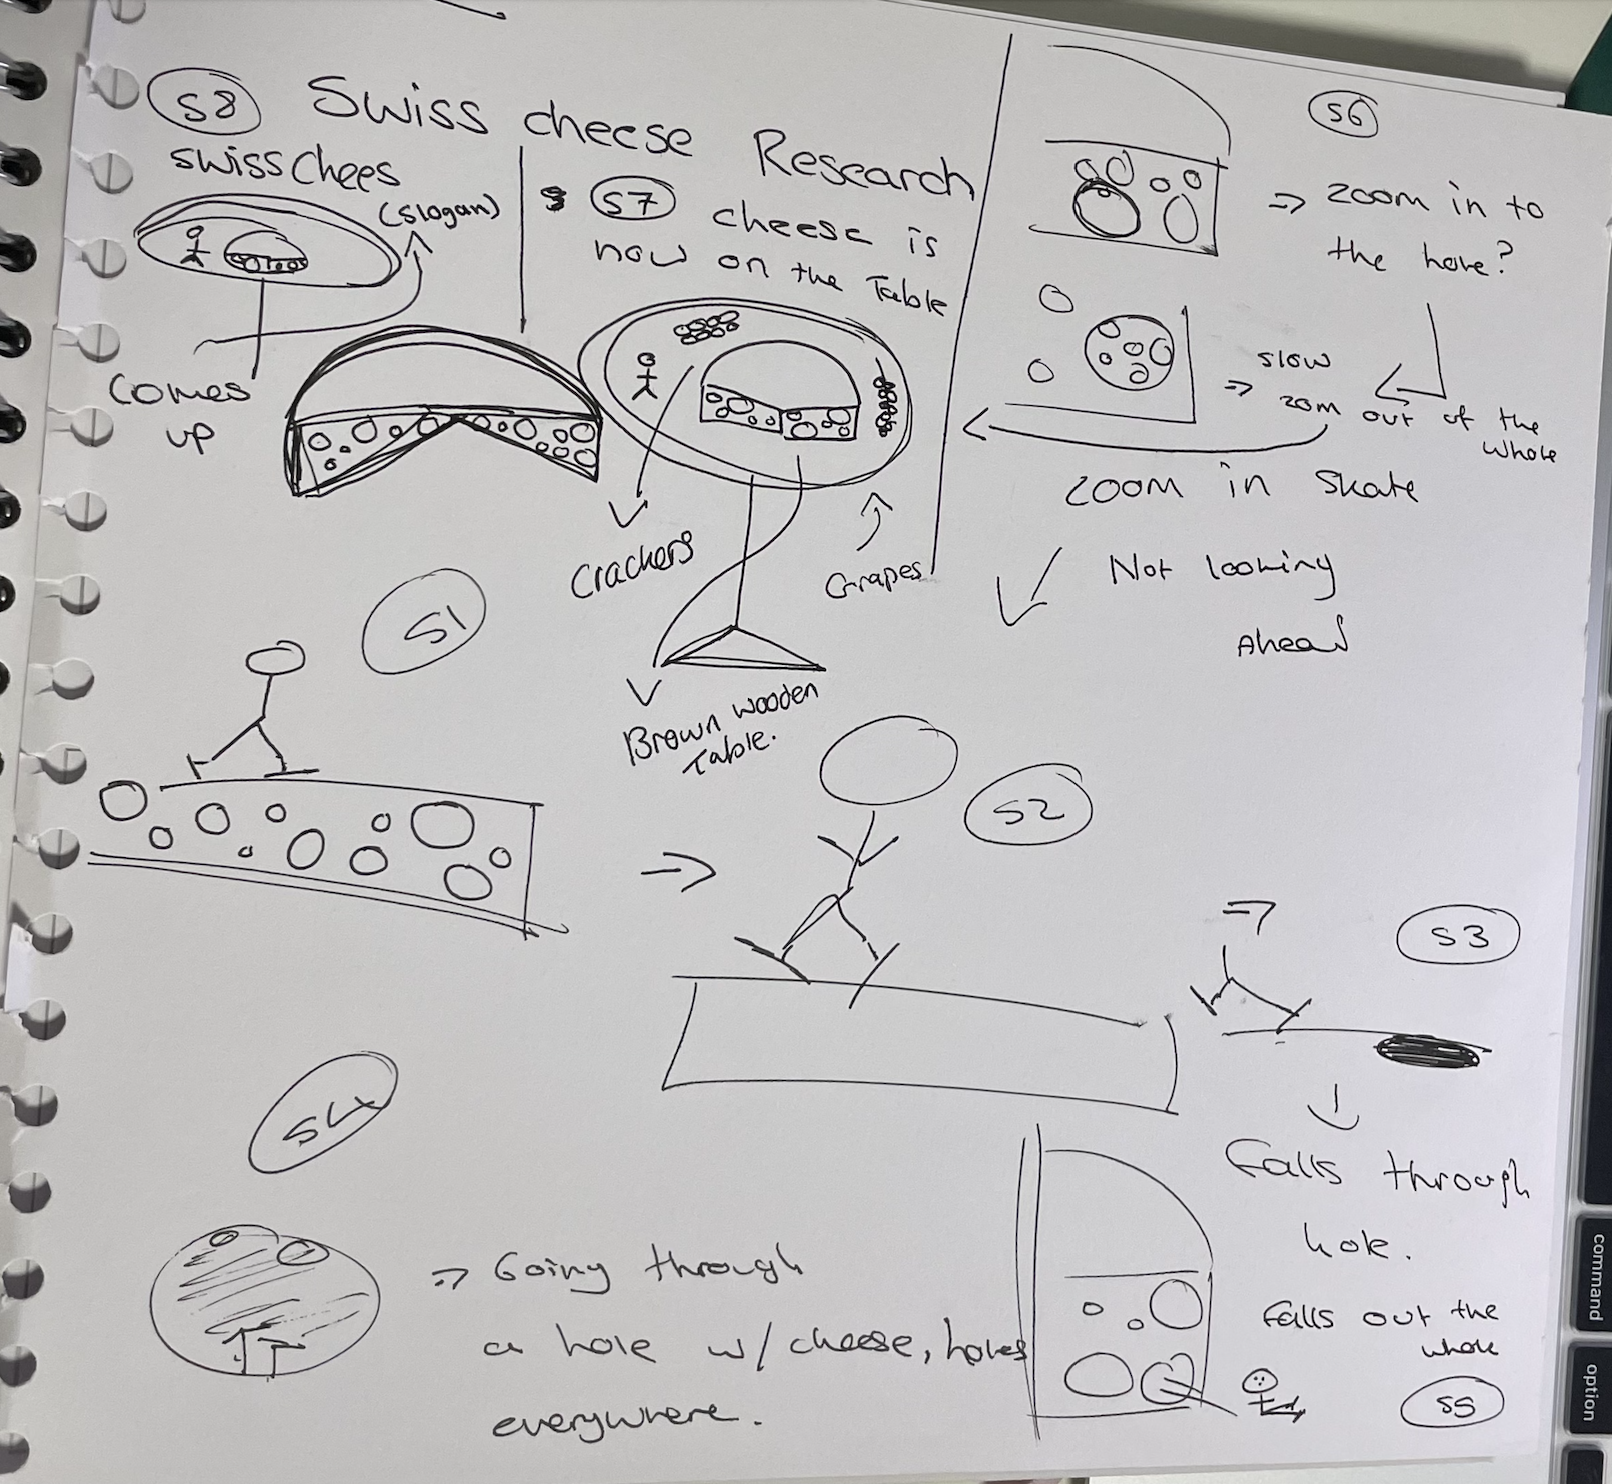 S8
Swiss cheese Research
swisschees
(slogan)
comes
up
S7
cheese is
now on the Table
Crackers
Grapes
Brown wooden
Table.
S6
=> zoom in to
the hole?
=> slow
zoom out of the
whole
zoom in skate
Not looking
Ahead
S1
S2
S3
Falls through
hole.
S4
=> Going through
a hole w/ cheese, holes
everywhere.
Falls out the
whole
S5
command
option